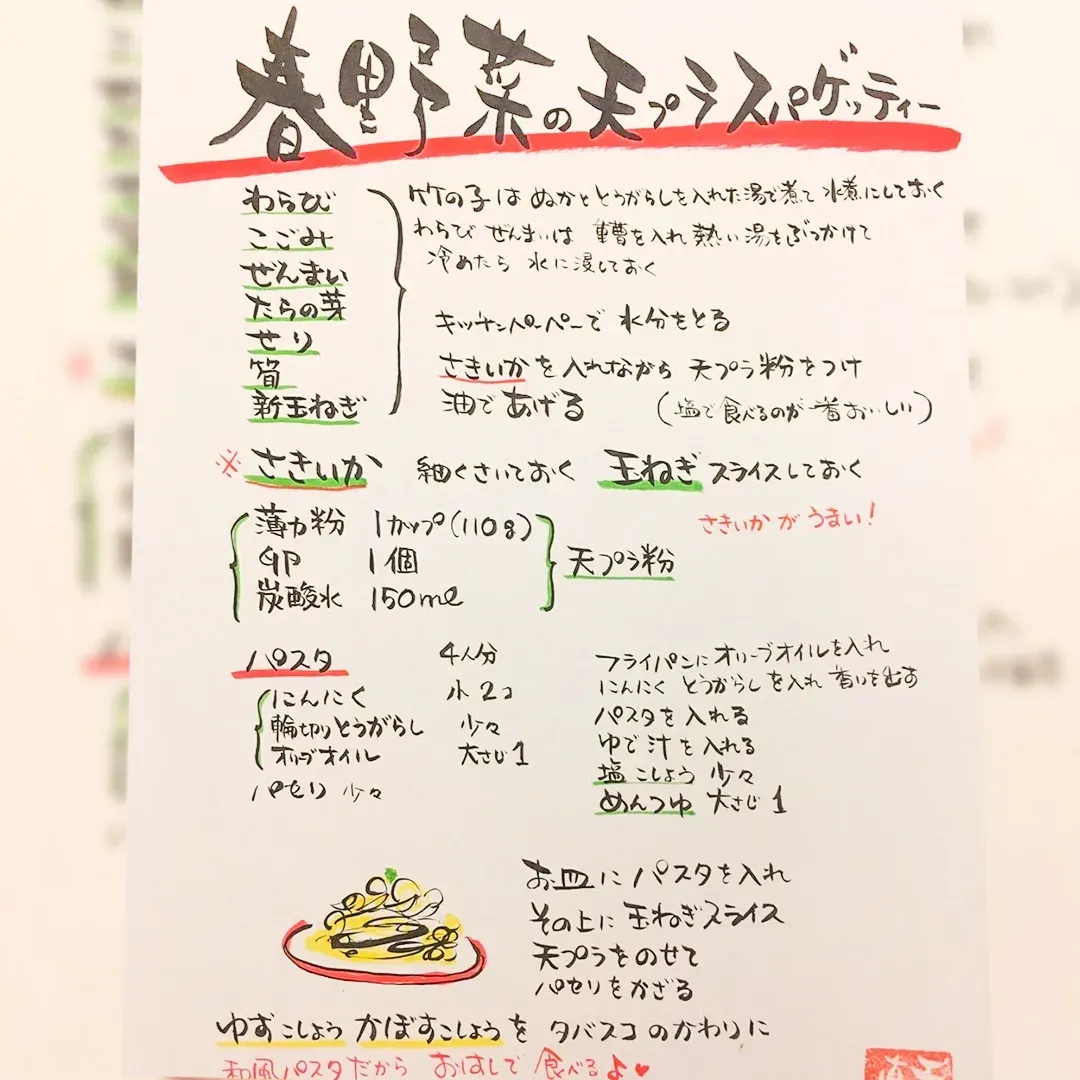 春野菜の天プラスパゲッティー
わらび
こごみ
ぜんまい
たらの芽
せり
筍
新玉ねぎ
竹の子は ぬかととうがらしを入れた湯で煮て 水煮にしておく
わらび ぜんまいは 重曹を入れ熱い湯をぶっかけて
冷めたら 水に浸しておく
キッチンペーパーで 水分をとる
さきいかを入れながら 天プラ粉をつけ
油であげる (塩で食べるのが一番おいしい)
※さきいか 細くさいておく 玉ねぎスライスしておく
さきいかがうまい!
薄力粉 1カップ(110g)
卵 1個
炭酸水 150ml
天プラ粉
パスタ 4人分
にんにく 小2コ
輪切りとうがらし 少々
オリーブオイル 大さじ1
パセリ 少々
フライパンにオリーブオイルを入れ
にんにく とうがらしを入れ 香りを出す
パスタを入れる
ゆで汁を入れる
塩こしょう 少々
めんつゆ 大さじ1
お皿にパスタを入れ
その上に玉ねぎスライス
天プラをのせて
パセリをかざる
ゆずこしょう かぼすこしょうを タバスコのかわりに
和風パスタだから おはしで 食べる♪♥